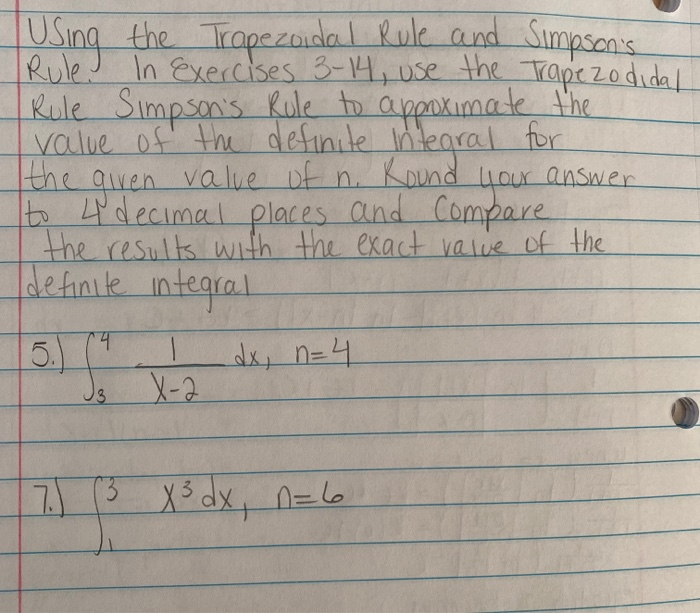 Using the Trapezoidal Rule and Simpson's
Rule. In Exercises 3-14, use the Trapezodidal
Rule Simpson's Rule to approximate the
value of the definite Integral for
the given value of n. Round your answer
to 4 decimal places and Compare
the results with the exact value of the
definite integral
5.) ∫₃⁴ 1/(x-2) dx, n=4
7.) ∫₁³ x³ dx, n=6